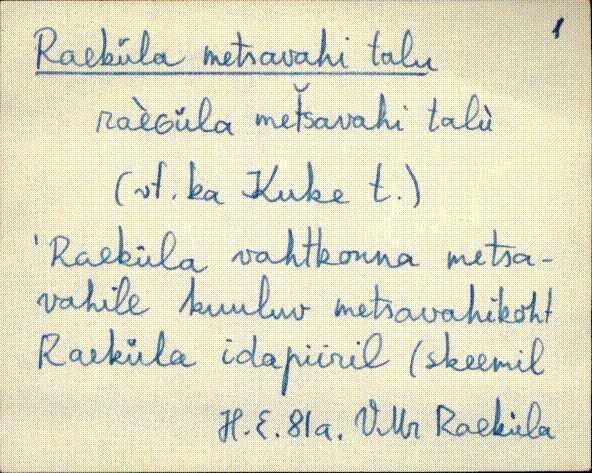 1
Raeküla metsavahi talu
raèGüla met̆savahi talù
(vt. ka Kuke t.)
'Raeküla vahtkonna metsa-
vahile kuuluv metsavahikoht
Raeküla idapiiril (skeemil
H.E. 81a. VMr Raeküla